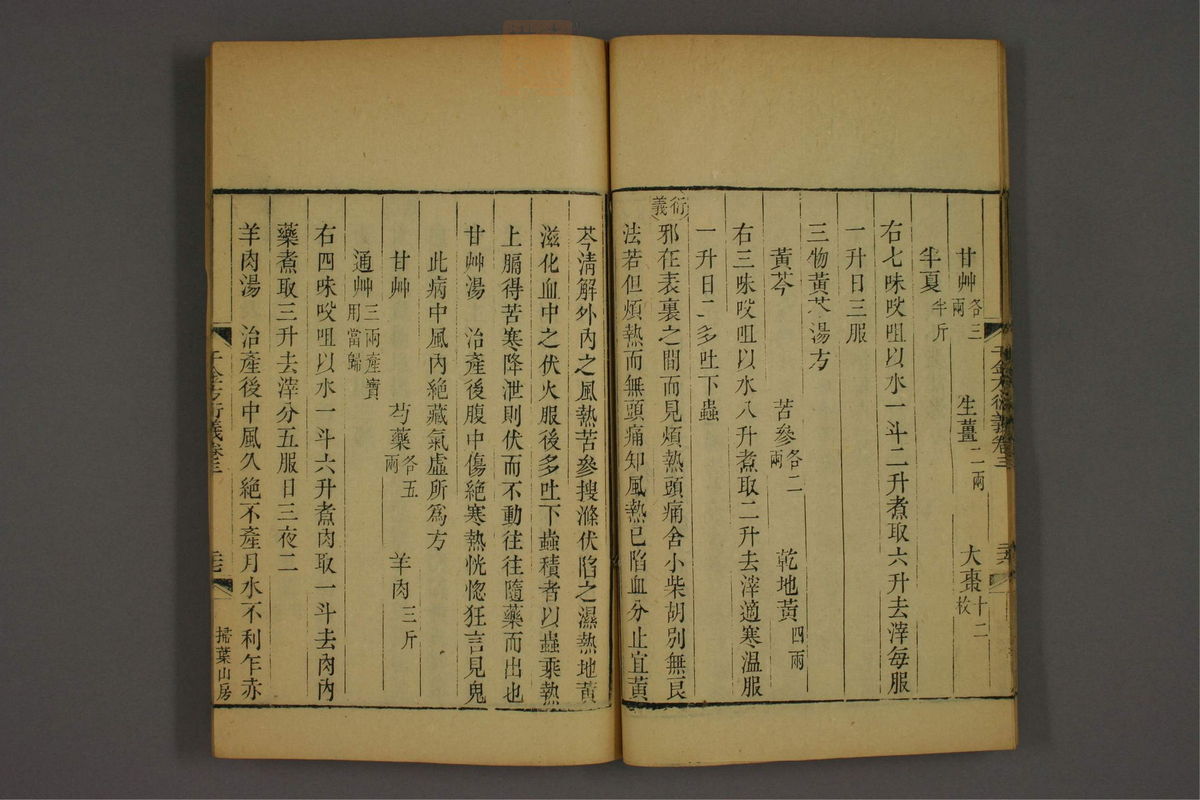 甘艸各三兩　生薑二兩　大棗十二枚
半夏半斤
右七味㕮咀以水一斗二升煮取六升去滓每服
一升日三服
三物黃芩湯方
黃芩　苦參各二兩　乾地黃四兩
右三味㕮咀以水八升煮取二升去滓適寒溫服
一升日二多吐下蟲
衍義邪在表裏之間而見煩熱頭痛舍小柴胡別無良
法若但煩熱而無頭痛知風熱已陷血分止宜黃
芩淸解外內之風熱苦參搜滌伏陷之濕熱地黃
滋化血中之伏火服後多吐下蟲積者以蟲乘熱
上膈得苦寒降泄則伏而不動往往隨藥而出也
甘艸湯　治產後腹中傷絕寒熱恍惚狂言見鬼
此病中風內絕藏氣虛所爲方
甘艸　芍藥各五兩　羊肉三斤
通艸三兩產寶用當歸
右四味㕮咀以水一斗六升煮肉取一斗去肉內
藥煮取三升去滓分五服日三夜二
羊肉湯　治產後中風久絕不產月水不利乍赤
千金方衍義卷三
掃葉山房